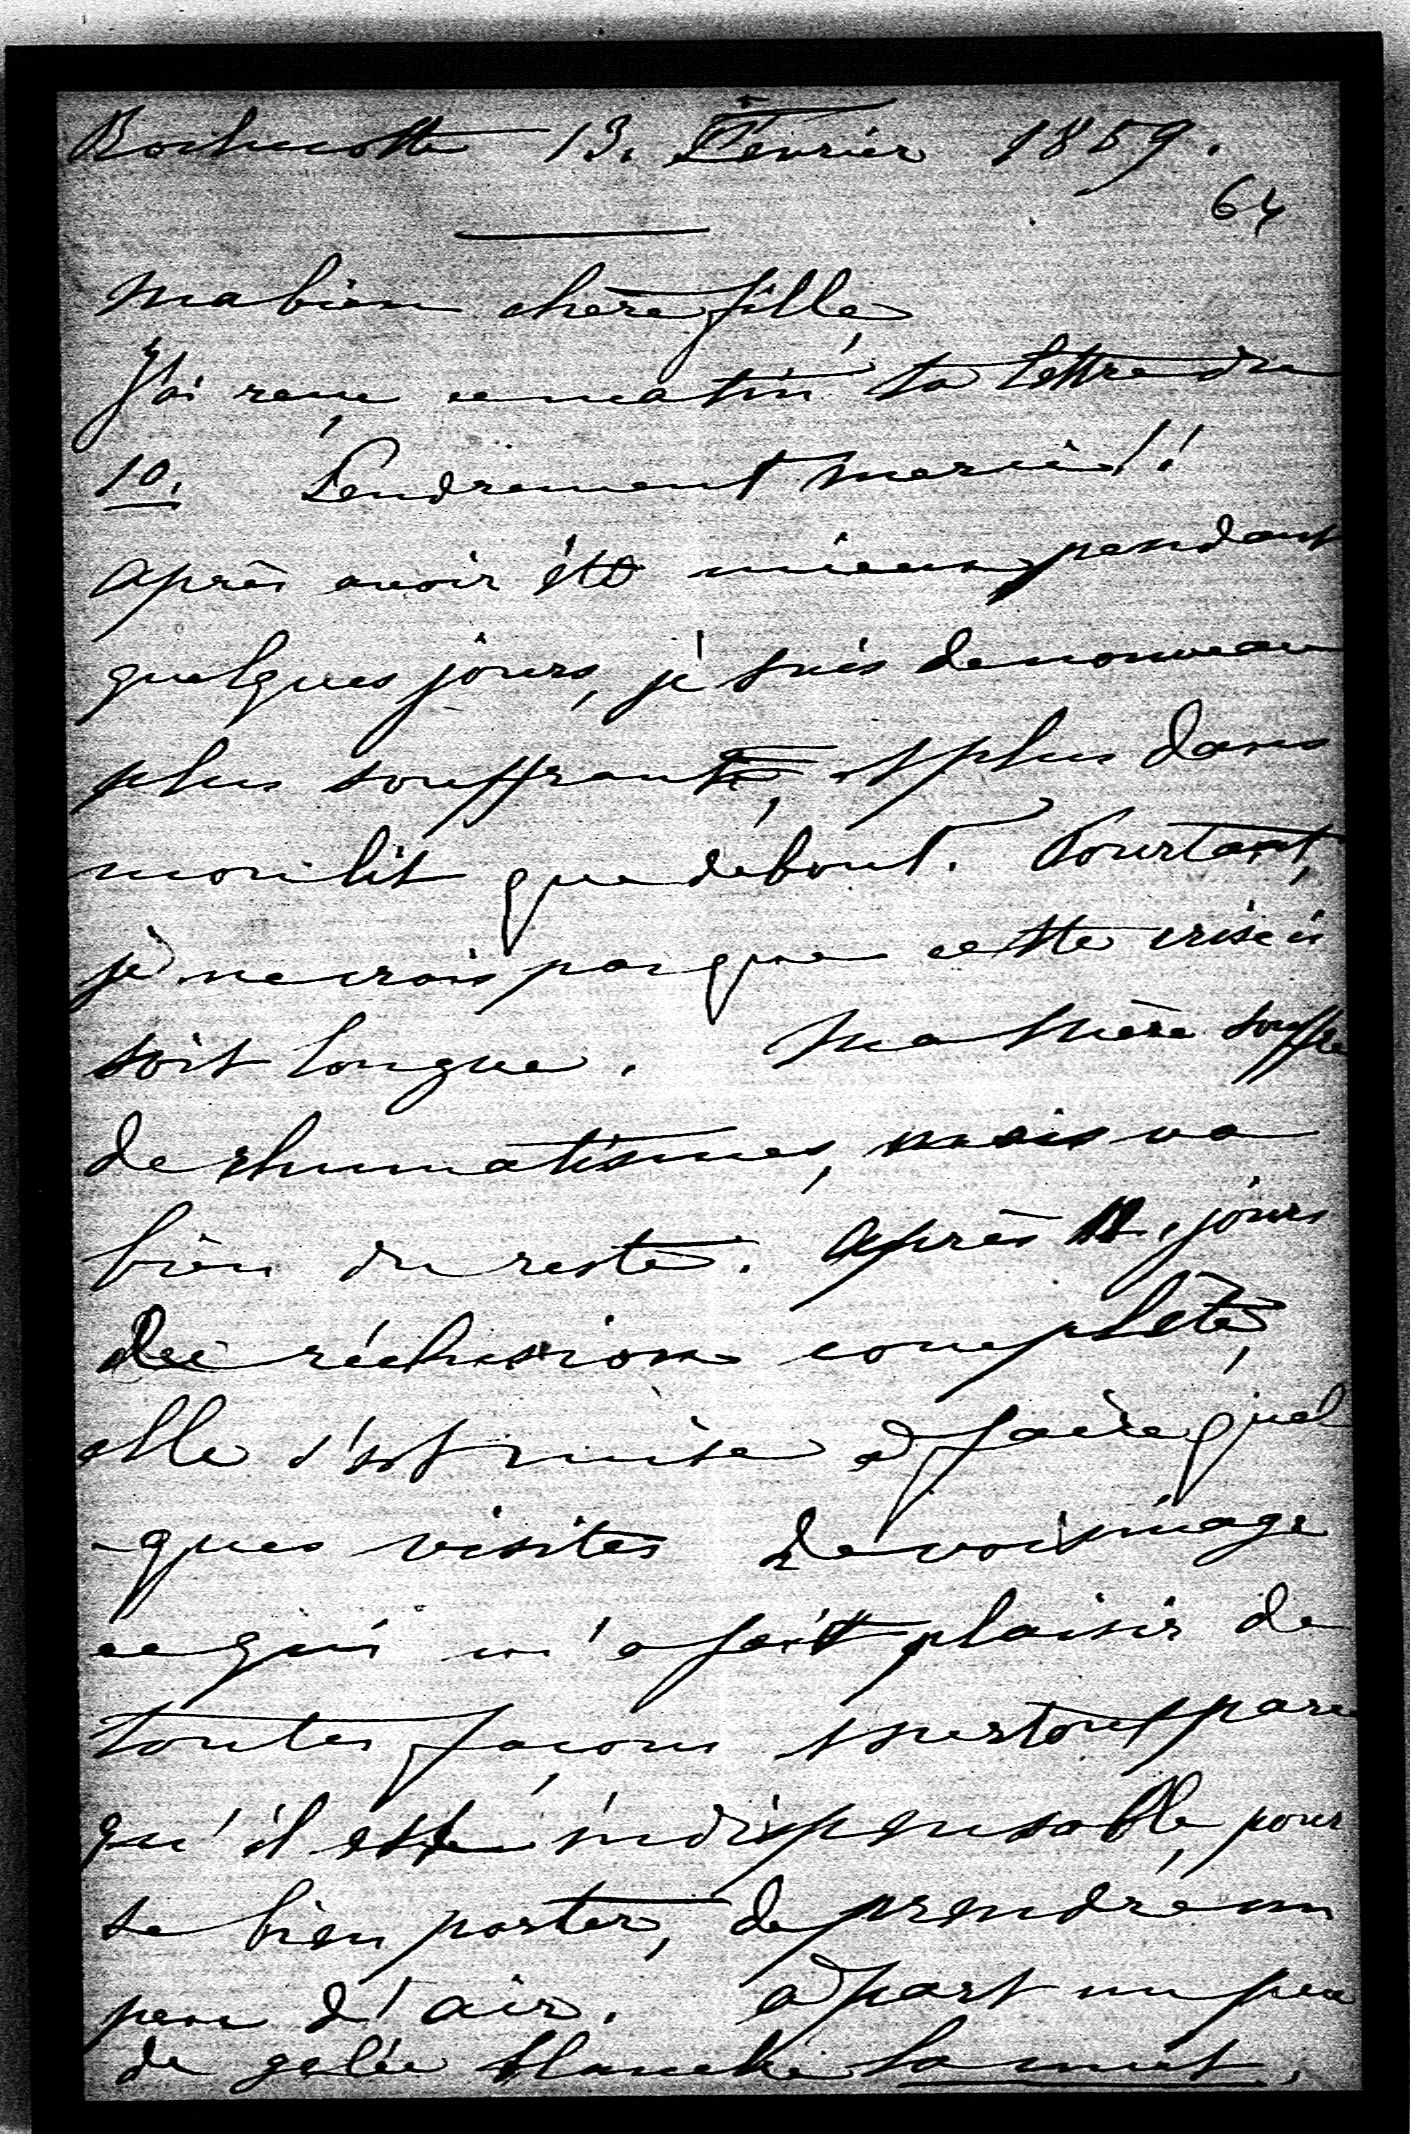 Rochecotte 13. Février 1859.
64
Ma bien chère fille,
J'ai reçu ce matin ta lettre du
10. Tendrement merci!!
Après avoir été mieux pendant
quelques jours, je suis de nouveau
plus souffrante, et plus dans
mon lit que debout. Pourtant,
je ne crois pas que cette crise ci
soit longue. Ma Mère souffre
de rhumatismes, mais va
bien du reste. Après 12. jours
de réclusion complète,
elle s'est mise à faire quel
-ques visites de voisinage
ce qui m'a fait plaisir de
toutes façons surtout parce
qu'il est indispensable, pour
se bien porter, de prendre un
peu d'air. à part un peu
de gelée blanche la nuit,